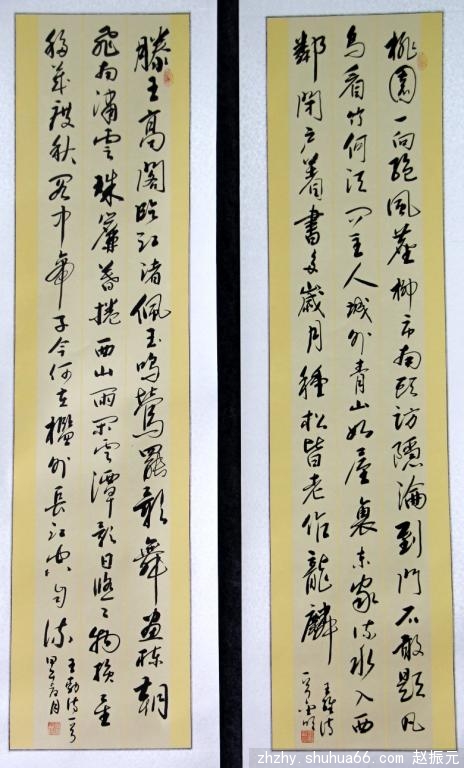 桃園一向絕風塵柳市南頭訪隱淪到門不敢題凡
鳥看竹何須問主人城外青山如屋裏東家流水入西
鄰閉户著書多歲月種松皆老作龍麟
王維詩
一首
滕王高閣臨江渚佩玉鳴鸞罷歌舞畫棟朝
飛南浦雲珠簾暮捲西山雨閑雲潭影日悠々物換星
移幾度秋閣中帝子今何在檻外長江空自流
王勃詩一首
甲午
zhzhy.shuhua66.com 赵振元